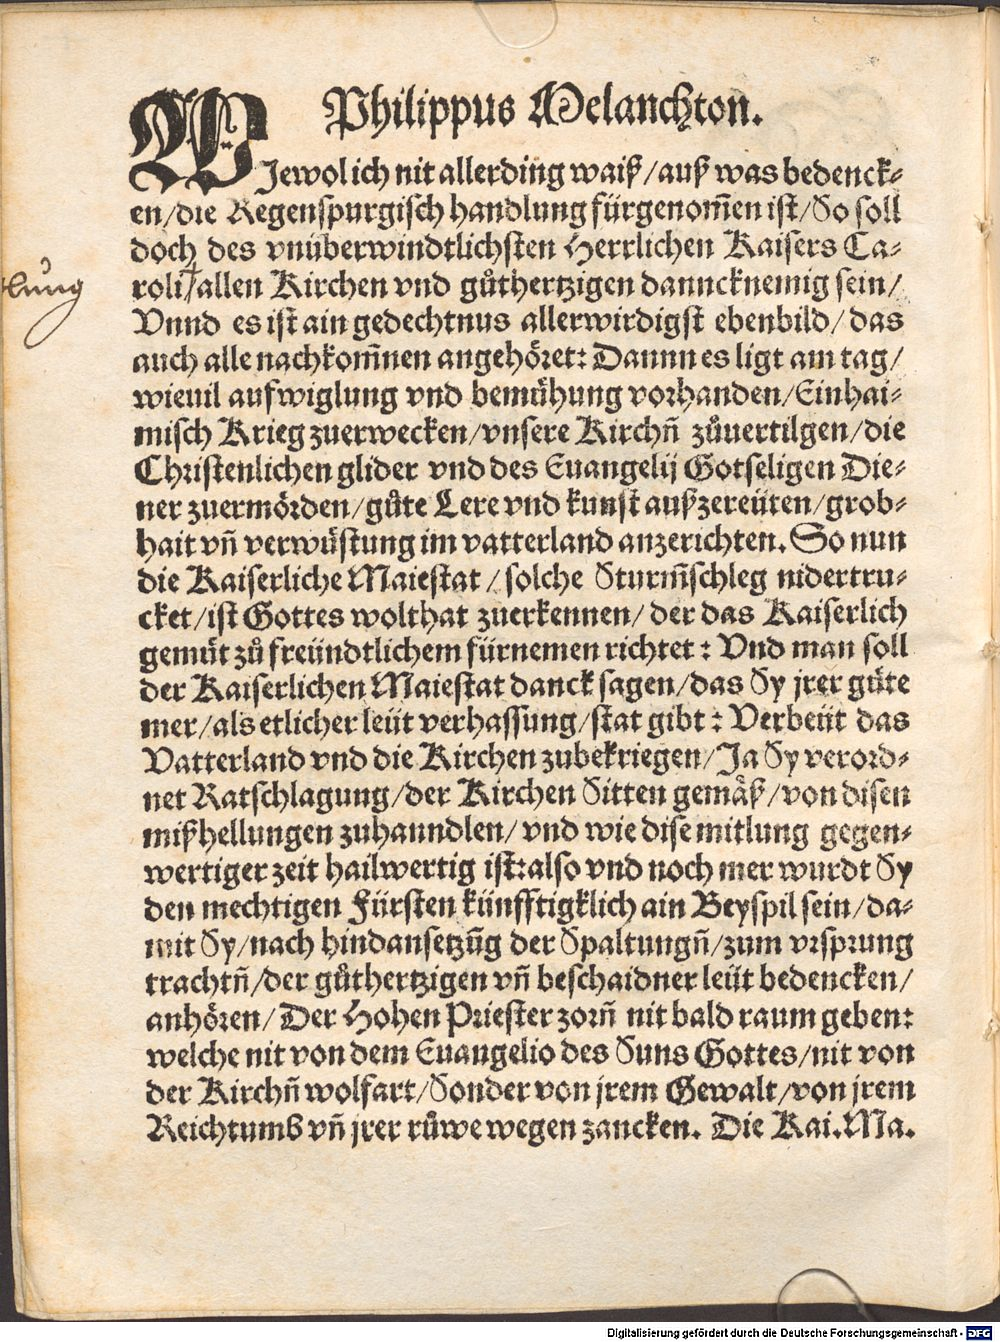 Philippus Melanchton.
WJewol ich nit allerding waiß/auß was bedenck-
en/die Regenspurgisch handlung fürgenom̃en ist/So soll
doch des vnüberwindtlichsten Herrlichen Kaisers Ca-
roli/allen Kirchen vnd gůthertzigen danncknemig sein/
Vnnd es ist ain gedechtnus allerwirdigst ebenbild/das
auch alle nachkom̃nen angehöret: Dannn es ligt am tag/
wieuil aufwiglung vnd bemühung vorhanden/Einhai-
misch Krieg zuerwecken/vnsere Kirchñ zůuertilgen/die
Christenlichen glider vnd des Euangelij Gotseligen Die-
ner zuermörden/gůte Lere vnd kunst außzereüten/grob-
hait vñ verwüstung im vatterland anzerichten. So nun
die Kaiserliche Maiestat/solche Sturm̃schleg nidertru-
cket/ist Gottes wolthat zuerkennen/der das Kaiserlich
gemüt zů freündtlichem fürnemen richtet: Vnd man soll
der Kaiserlichen Maiestat danck sagen/das Sy jrer güte
mer/als etlicher leüt verhassung/stat gibt: Verbeüt das
Vatterland vnd die Kirchen zubekriegen/Ja Sy verord-
net Ratschlagung/der Kirchen Sitten gemäß/von disen
mißhellungen zuhanndlen/vnd wie dise mitlung gegen-
wertiger zeit hailwertig ist:also vnd noch mer wurdt Sy
den mechtigen Fürsten künfftigklich ain Beyspil sein/da-
mit Sy/nach hindansetzũg der Spaltungñ/zum vrsprung
trachtñ/der gůthertzigen vñ beschaidner leüt bedencken/
anhören/Der Hohen Priester zorñ nit bald raum geben:
welche nit von dem Euangelio des Suns Gottes/nit von
der Kirchñ wolfart/Sonder von jrem Gewalt/von jrem
Reichtumb vñ jrer růwe wegen zancken. Die Kai.Ma.
lung
Digitalisierung gefördert durch die Deutsche Forschungsgemeinschaft - DFG